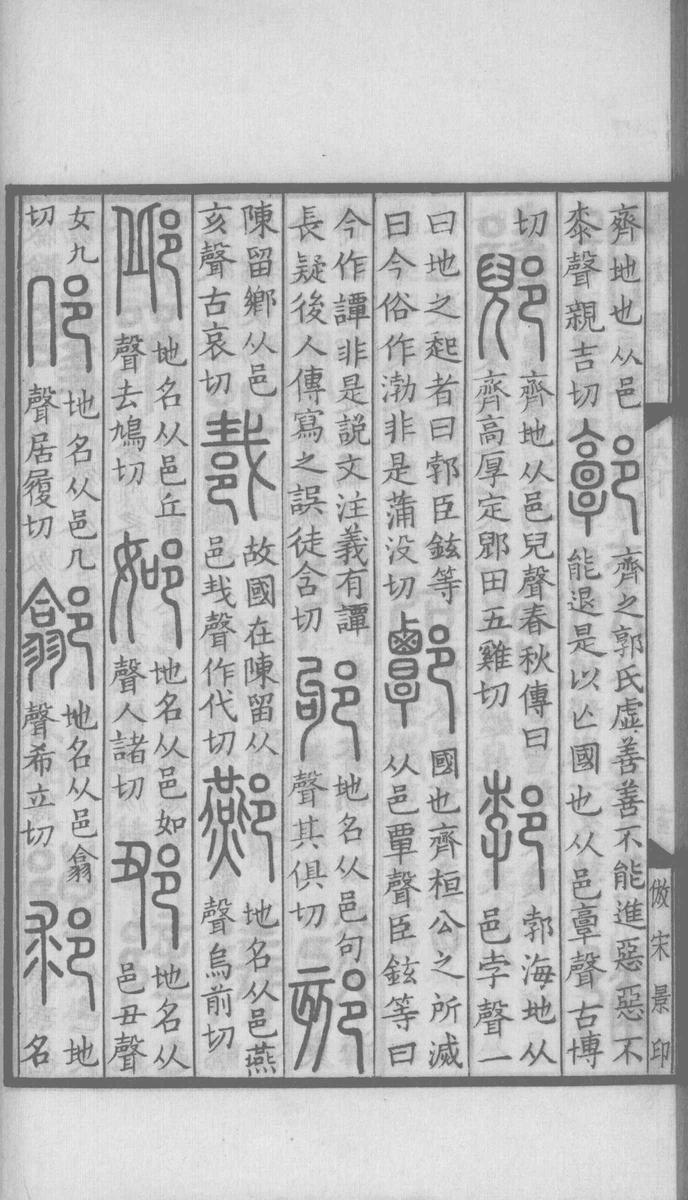 齊地也从邑
桼聲親吉切
郭
齊之郭氏虛善善不能進惡惡不
能退是以亾國也从邑𩫏聲古博
切
郳
齊地从邑兒聲春秋傳曰
齊高厚定郳田五雞切
郣
郭海地从
邑孛聲一
曰地之起者曰郭臣鉉等
曰今俗作渤非是蒲没切
國也齊桓公之所滅
从邑覃聲臣鉉等曰
今作譚非是説文注義有譚
長疑後人傳寫之誤徒含切
邭
地名从邑句
聲其俱切
郂
陳留鄉从邑
亥聲古哀切
故國在陳留从
邑𢦏聲作代切
酀
地名从邑燕
聲烏前切
邱
地名从邑丘
聲去鳩切
邚
地名从邑如
聲人諸切
地名从
邑丑聲
女九
切
地名从邑几
聲居履切
地名从邑翕
聲希立切
地
名
倣宋景印